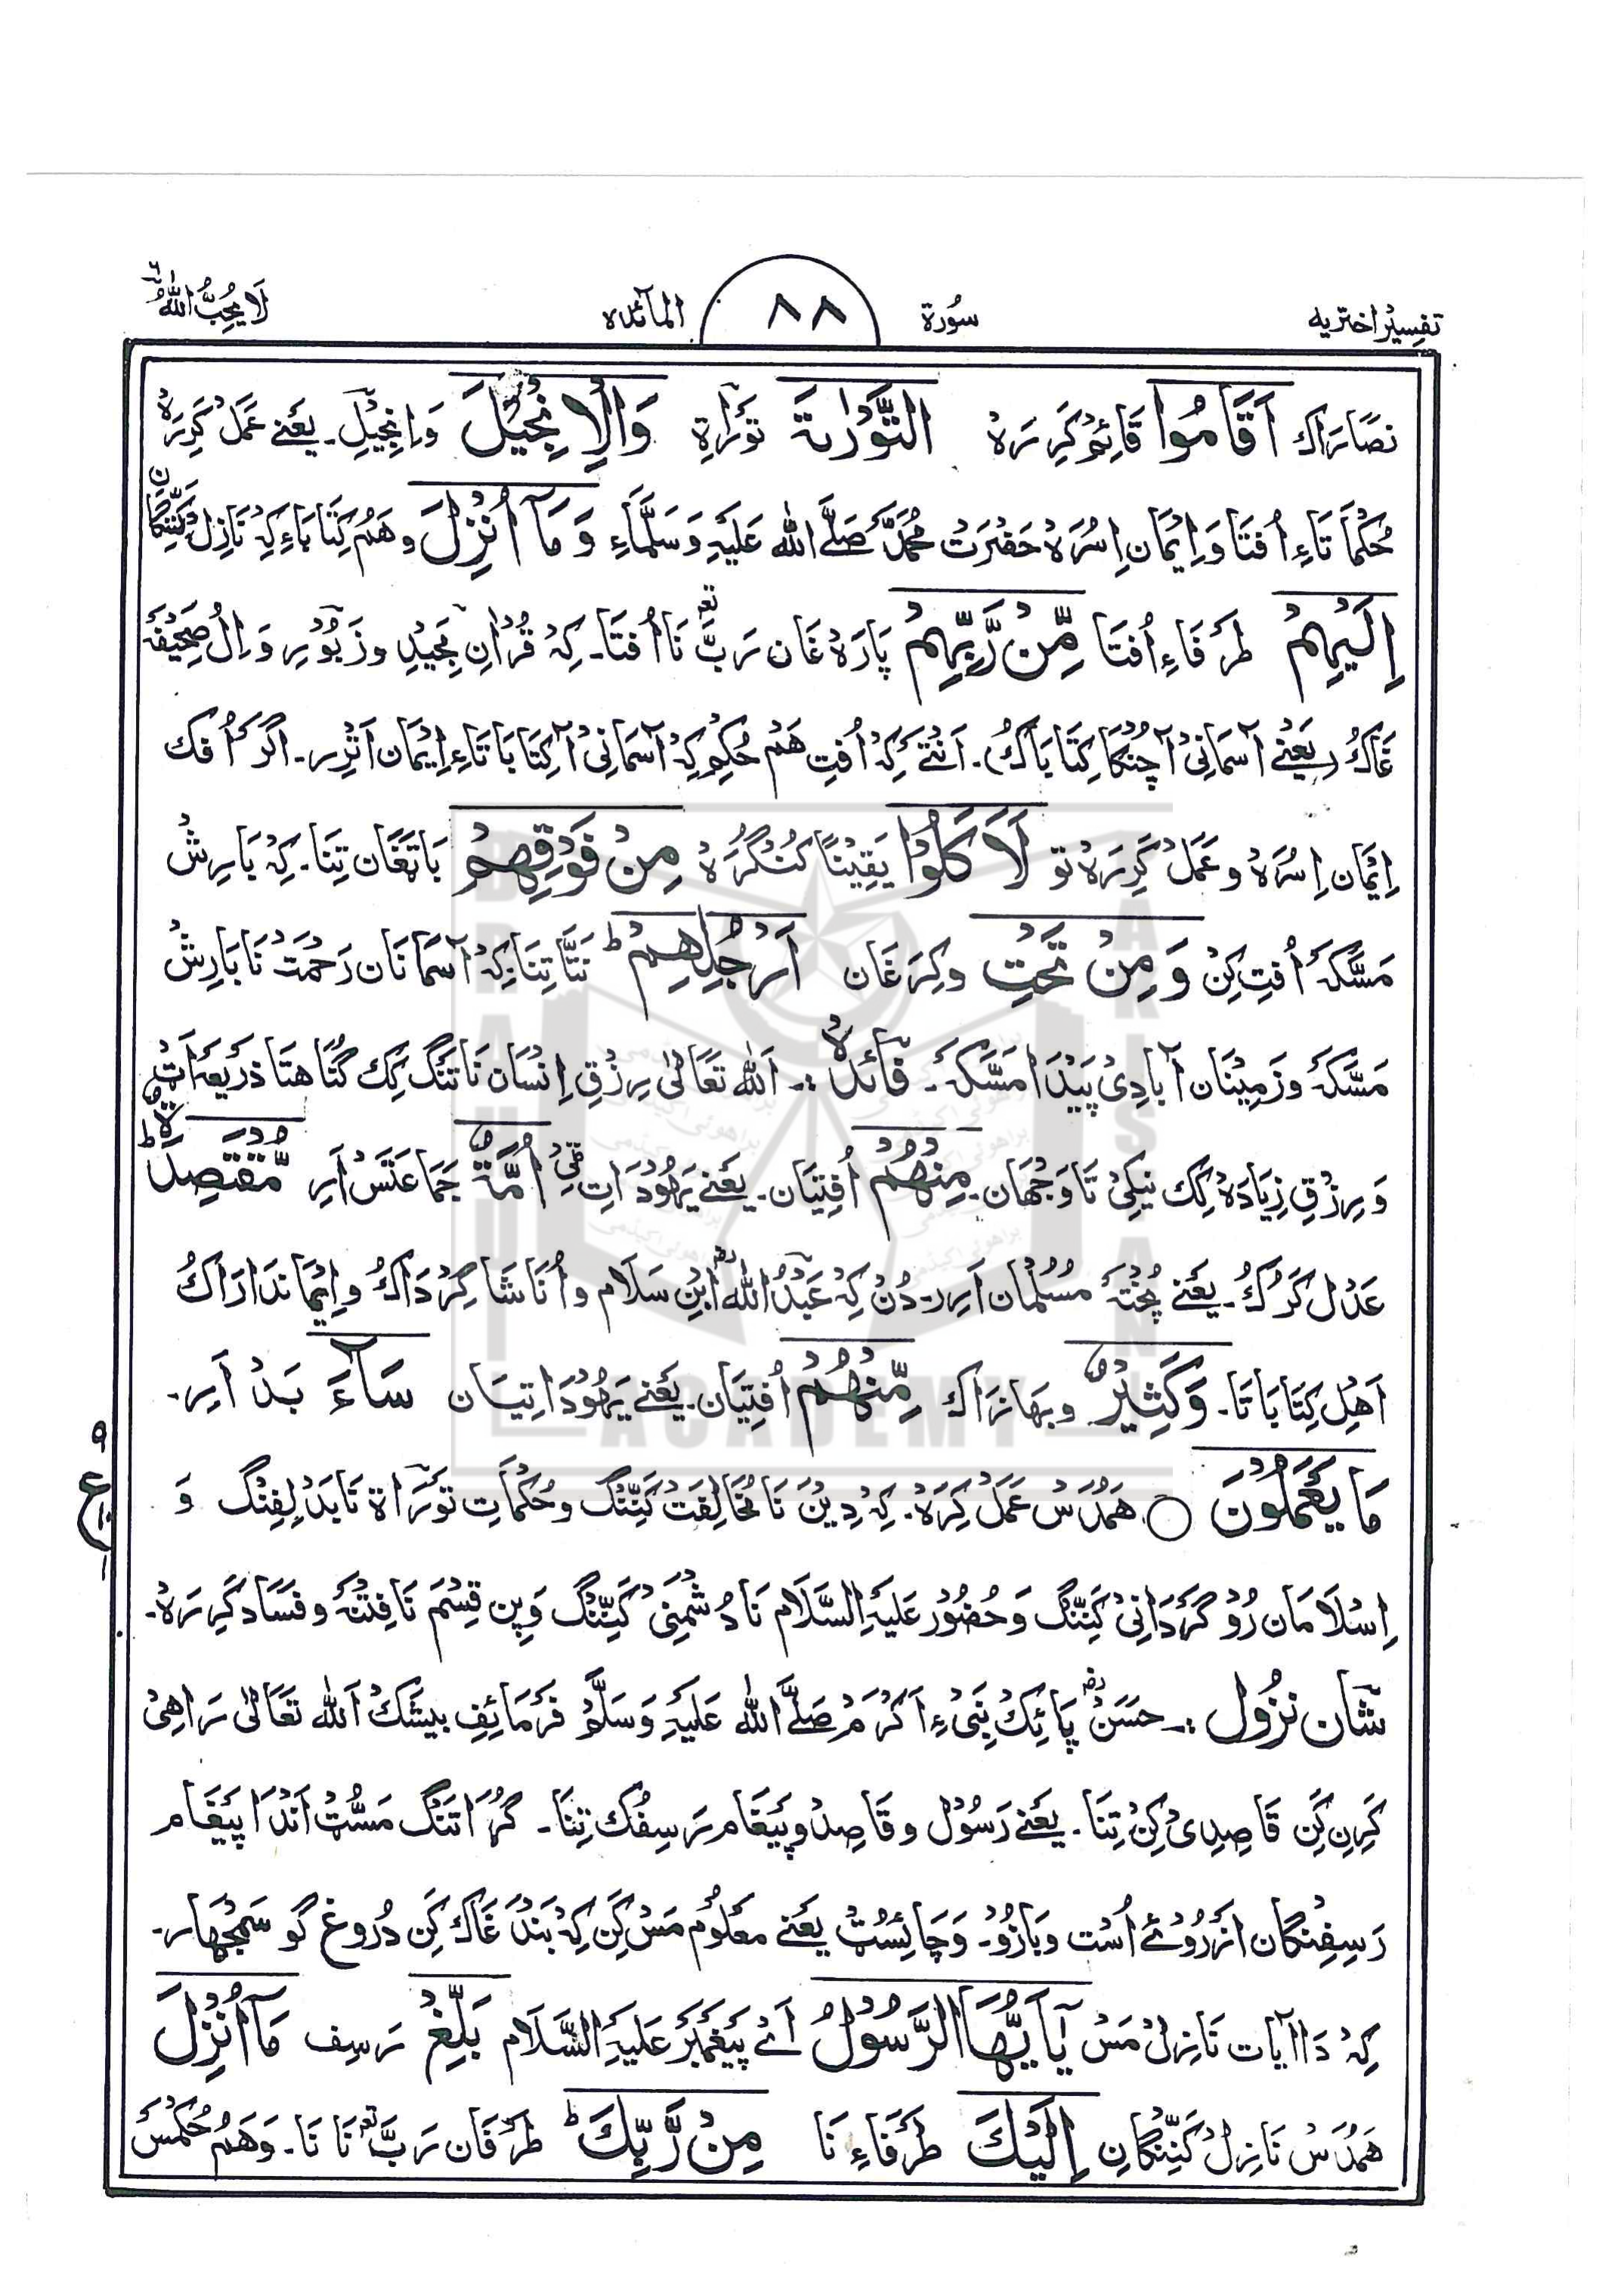 تفسیر اختریه سُورة ٨٨ المآئده لَا یُحِبُّ اللهُ ٦
نصَارَاک اَقَامُوا قَائِم کَرِرَہ التَّوْرٰىةَ توَراةِ وَالْاِنْجِیْلَ وَ اِنْجِیْلِ۔ یَعْنے عَمَلْ کَرِرَہ
حُکمَاتَاءِ اُفتَا وَ اِیْمَان اِسُرَہ حَضْرَتْ مُحَمَّدْ صَلَّے اللّٰه عَلَیْهِ وَسَلَّمَاءِ وَمَآ اُنْزِلَ و هَمْ کِتَابَاءِ کِہْ نَازِلْ کَنِّنگَان
اِلَیْهِمْ طرَفَاءِ اُفتَا مِّنْ رَّبِّهِمْ پَارَہ غَان رَبّ تعہ نَا اُفتَا۔ کِہْ قُرْاٰنِ مَجِیْدِ و زَبُوْرِ وَ اِلْ صَحِیْفَہ
غَاکْ (یَعْنے آسْمَانِیْ آ چُنْکَا کِتَابَاکْ)۔ اَنْتَے کِہْ اُفتِ هَمْ حُکم کِہْ آسْمَانِیْ آ کِتَابَاتَاءِ اِیْمَان اَتْرِر۔ اگر اُفک
اِیْمَان اِسُرَہ و عَمَلْ کَرِرَہ تو لَاَکَلُوْا یَقِیْنًا کُنْگُرَہ مِنْ فَوْقِهِمْ بَاتَغَان تِنَا۔ کِہْ بَارِشْ
مَسَّکَہ اُفتِ کِنْ وَمِنْ تَحْتِ و کِرَغَان اَرْجُلِهِمْ ط نَتَّا تِنَا کِہْ آسمَانَان رَحْمَتْ نَا بَارِشْ
مَسَّکَہ و زَمِیْنَان آبَادِیْ پَیْدَا مَسَّکَہ۔ فائدہ :۔ اَللّٰه تَعَالٰی رِزْقِ اِنْسَان نَا تَنْگ کِک گُنَا هتَا ذرِیْعَہ اَتْ
وَ رِزْقِ زِیَادَہ کِک نیکِیْ تَا وَجْهَان۔ مِنْهُمْ اُفتِیَان۔ یَعْنے یَهُوْدَاتِ اُمَّةٌ جَمَاعَتَسْ اَرِ مُّقْتَصِدَةٌ ط
عَدْل کَرُکْ۔ یَعْنے پُختَہ مُسُلْمَان اَرِر۔ دُنْ کِہْ عَبْدُ اللّٰه اِبْنِ سَلَام و اُنَا شَاگِرْدَاکْ و اِیْمَاندَارَاکْ
اَهْلِ کِتَابَاتَا۔ وَکَثِیْرٌ و بهَازَاک مِّنْهُمْ اُفتِیَان۔ یَعْنے یَهُوْدَاتِیَان سَآءَ بَدْ اَرِ۔
مَا یَعْمَلُوْنَ ○ هَمْدَسْ عَمَلْ کِرَہ۔ کِہْ دِیْنَ نَا مُخَالِفَتْ کَنِّنگ و حُکمَاتِ توَراة نَا بَدْلِفِنگ وَ
اِسْلَامَان رُوْگَرْدَانِیْ کَنِّنگ وَ حُضُوْر عَلَیْهِ السَّلَام نَا دُشْمَنِیْ کَنِّنگ وَ پِن قِسْم نَا فِتْنَہ و فسَاد کَرِرَہ۔
شَان نزُول :۔ حسَنْ رض پَائِک نَبِیءِ اَکْرَمْ صَلَّے اللّٰه عَلَیْهِ وَسَلَّمْ فَرْمَائِفِ بیشَکْ اَللّٰه تَعَالٰی رَاهِیْ
کَرِن کَنِ قَاصِدِیْ کِنْ تِنَا۔ یَعْنے رَسُوْل و قَاصِد و پَیْغَام رَسِفُک تِنَا۔ گڑا تَنْگ مَسُّٹ اَنْدَا پَیْغَام
رَسِفِنگان اَزْرُوْئے اُسْت و بَازُو۔ وَ چَائِسُٹ یَعْنے مَعْلُوْم مَسْ کَنِ کِہْ بَنْدَغَاک کَنِ دُرُوغ گو سَمْجهَار۔
کِہْ دَا آیَات نَازِلْ مَسْ یٰٓاَیُّهَا الرَّسُوْلُ اَے پَیْغَمْبَر عَلَیْهِ السَّلَام بَلِّغْ رَسِف مَآ اُنْزِلَ
هَمْدَسْ نَازِلْ کَنِّنگانِ اِلَیْكَ طرَفَاءِ نَا مِنْ رَّبِّكَ ط طرَفَان رَبّ تعہ نَا نَا۔ وَهَمْ حُکمَسْ
ع
BRAHUI ACADEMY PAKISTAN